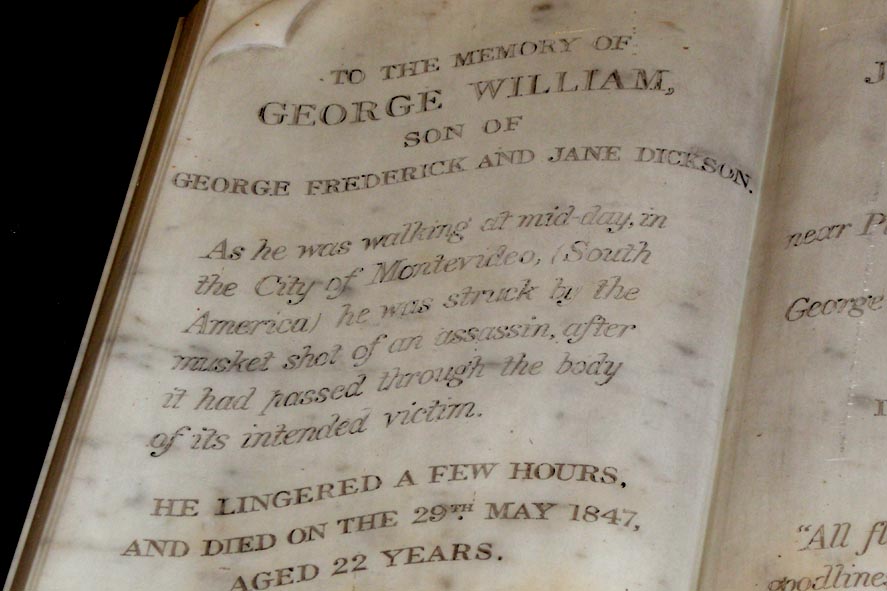 TO THE MEMORY OF
GEORGE WILLIAM,
SON OF
GEORGE FREDERICK AND JANE DICKSON.
As he was walking at mid-day, in
the City of Montevideo, (South
America) he was struck by the
musket shot of an assassin, after
it had passed through the body
of its intended victim.
HE LINGERED A FEW HOURS,
AND DIED ON THE 29TH MAY 1847,
AGED 22 YEARS.
J
near P
George
"All fl
goodlines